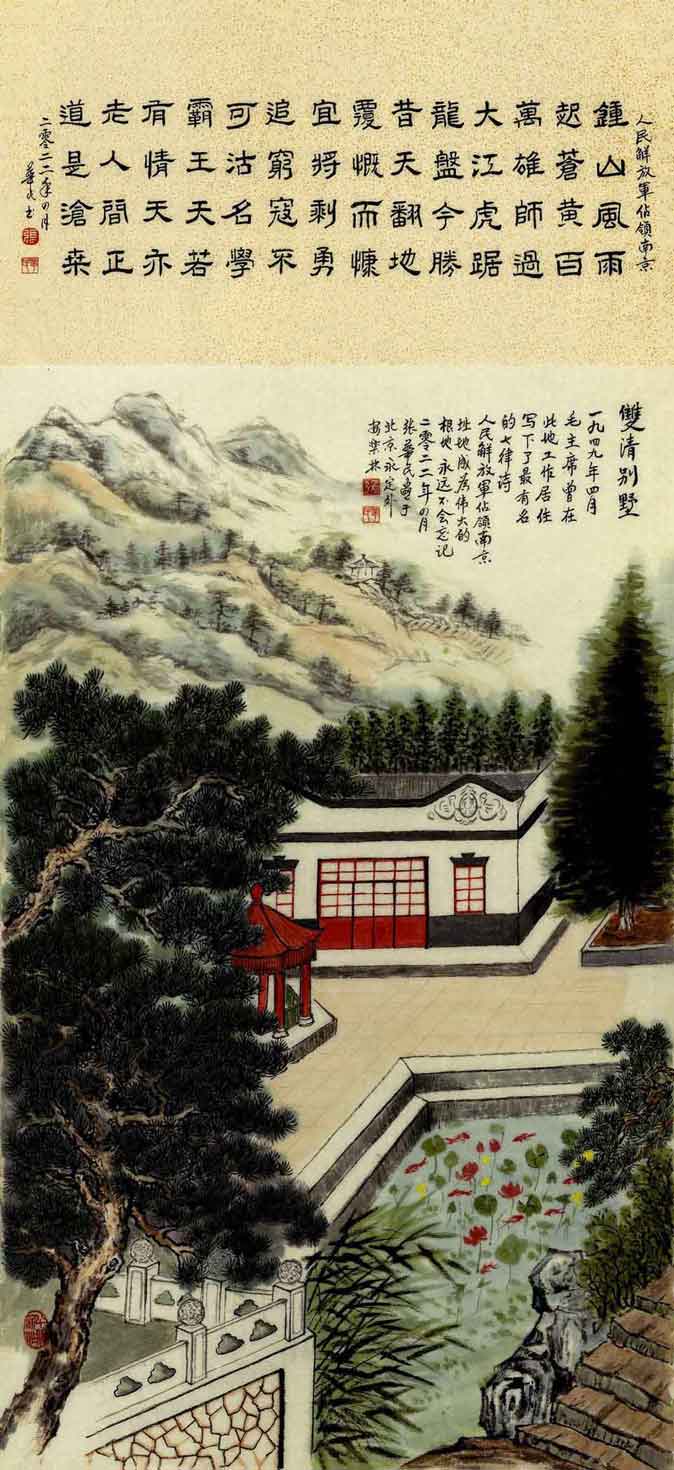 人民解放軍佔領南京
鍾山風雨
起蒼黄百
萬雄師過
大江虎踞
龍盤今勝
昔天翻地
覆慨而慷
宜將剩勇
追窮寇不
可沽名學
霸王天若
有情天亦
老人間正
道是滄桑
二零二二年四月
華民书
雙清别墅
一九四九年四月
毛主席曾在
此地工作居住
写下了最有名
的七律诗
人民解放軍佔領南京
址地成為伟大的
根地永远不会忘记
二零二二年四月
张華民画于
北京永定外
安樂林